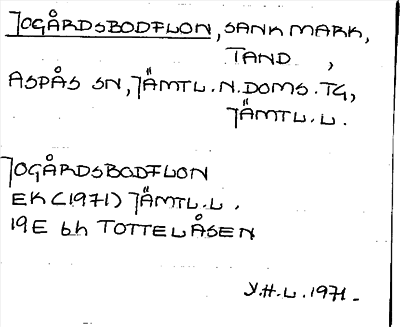 JOGÅRDSBODFLON, SANK MARK,
TAND ,
ASPÅS SN, JÄMTL.N.DOMS.TG,
JÄMTL.L.
JOGÅRDSBODFLON
EK(1971) JÄMTL.L.
19E bh TOTTELÅSEN
Y.H.L.1971.